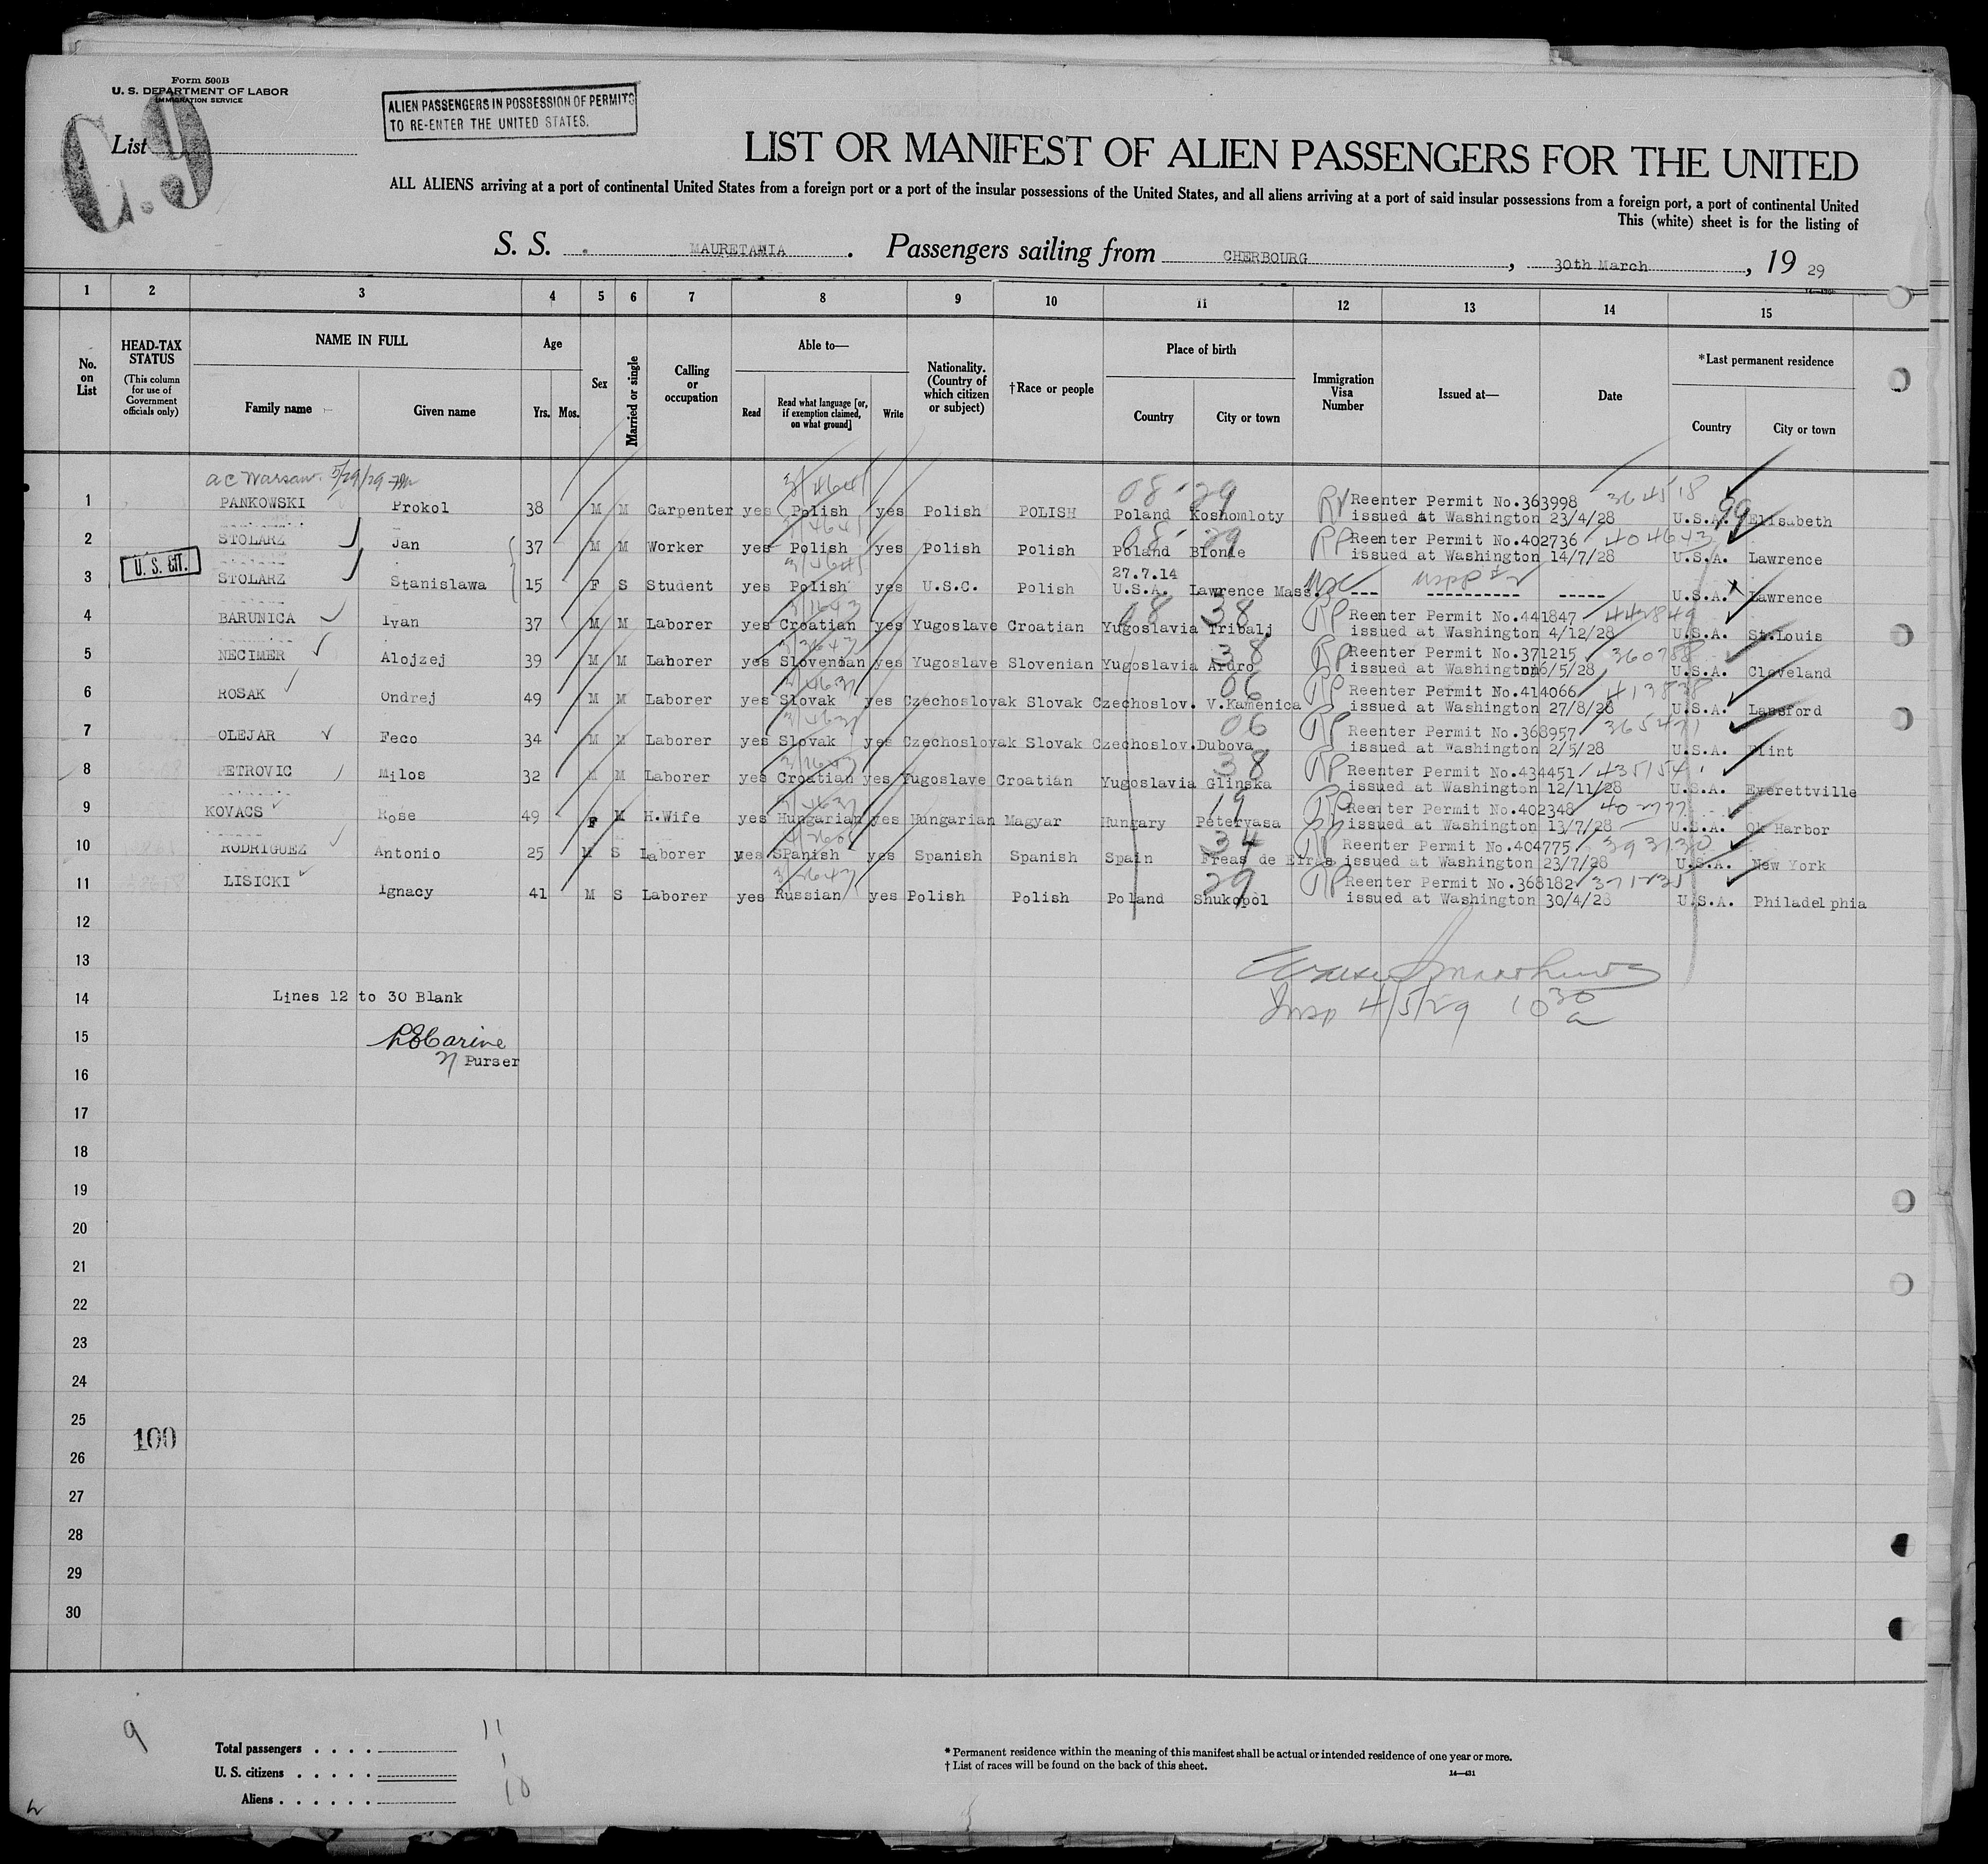 Form 500B
U. S. DEPARTMENT OF LABOR
IMMIGRATION SERVICE
ALIEN PASSENGERS IN POSSESSION OF PERMITS
TO RE-ENTER THE UNITED STATES.
List
C.9
LIST OR MANIFEST OF ALIEN PASSENGERS FOR THE UNITED
ALL ALIENS arriving at a port of continental United States from a foreign port or a port of the insular possessions of the United States, and all aliens arriving at a port of said insular possessions from a foreign port, a port of continental United
This (white) sheet is for the listing of
S. S. MAURETANIA. Passengers sailing from CHERBOURG, 30th March, 19 29
1 2 3 4 5 6 7 8 9 10 11 12 13 14 15
No. on List
HEAD-TAX STATUS
(This column for use of Government officials only)
NAME IN FULL
Family name Given name
Age
Yrs. Mos.
Sex
Married or single
Calling or occupation
Able to—
Read
Read what language [or, if exemption claimed, on what ground]
Write
Nationality. (Country of which citizen or subject)
†Race or people
Place of birth
Country City or town
Immigration Visa Number
Issued at—
Date
*Last permanent residence
Country City or town
ac Warsaw 5/29/29
1 PANKOWSKI Prokol 38 M M Carpenter yes Polish yes Polish POLISH Poland Koshomloty Reenter Permit No.363998 364518
issued at Washington 23/4/28 U.S.A. Elisabeth
08-29 99
2 STOLARZ Jan 37 M M Worker yes Polish yes Polish Polish Poland Blonie RP Reenter Permit No.402736 404643
issued at Washington 14/7/28 U.S.A. Lawrence
08-29
U. S. CIT.
27.7.14
3 STOLARZ Stanislawa 15 F S Student yes Polish yes U.S.C. Polish U.S.A. Lawrence Mass. USC --- ---------- ----- U.S.A. Lawrence
4 BARUNICA Ivan 37 M M Laborer yes Croatian yes Yugoslave Croatian Yugoslavia Tribalj RP Reenter Permit No.441847 442849
issued at Washington 4/12/28 U.S.A. St.Louis
08 38
5 NECIMER Alojzej 39 M M Laborer yes Slovenian yes Yugoslave Slovenian Yugoslavia Ardro RP Reenter Permit No.371215 360788
issued at Washington 6/5/28 U.S.A. Cleveland
38
6 ROSAK Ondrej 49 M M Laborer yes Slovak yes Czechoslovak Slovak Czechoslov. V.Kamenica RP Reenter Permit No.414066 413838
issued at Washington 27/8/28 U.S.A. Lansford
06
7 OLEJAR Feco 34 M M Laborer yes Slovak yes Czechoslovak Slovak Czechoslov.Dubova RP Reenter Permit No.368957 365471
issued at Washington 2/5/28 U.S.A. Flint
06
8 PETROVIC Milos 32 M M Laborer yes Croatian yes Yugoslave Croatian Yugoslavia Glinska RP Reenter Permit No.434451 435154
issued at Washington 12/11/28 U.S.A. Everettville
38
9 KOVACS Rose 49 F M H.Wife yes Hungarian yes Hungarian Magyar Hungary Petervasa RP Reenter Permit No.402348 402777
issued at Washington 13/7/28 U.S.A. Ok Harbor
19
10 RODRIGUEZ Antonio 25 M S Laborer yes SPanish yes Spanish Spanish Spain Freas de Eiras RP Reenter Permit No.404775 393130
issued at Washington 23/7/28 U.S.A. New York
34
11 LISICKI Ignacy 41 M S Laborer yes Russian yes Polish Polish Poland Shukopol RP Reenter Permit No.368182
issued at Washington 30/4/28 U.S.A. Philadelphia
29
12
13
14 Lines 12 to 30 Blank
Matthews
Insp 4/5/29 10 30 a
15
Purser
16
17
18
19
20
21
22
23
24
25
100
26
27
28
29
30
9
Total passengers . . . . 11
U. S. citizens . . . . . 1
Aliens . . . . . . 10
* Permanent residence within the meaning of this manifest shall be actual or intended residence of one year or more.
† List of races will be found on the back of this sheet.
14—431